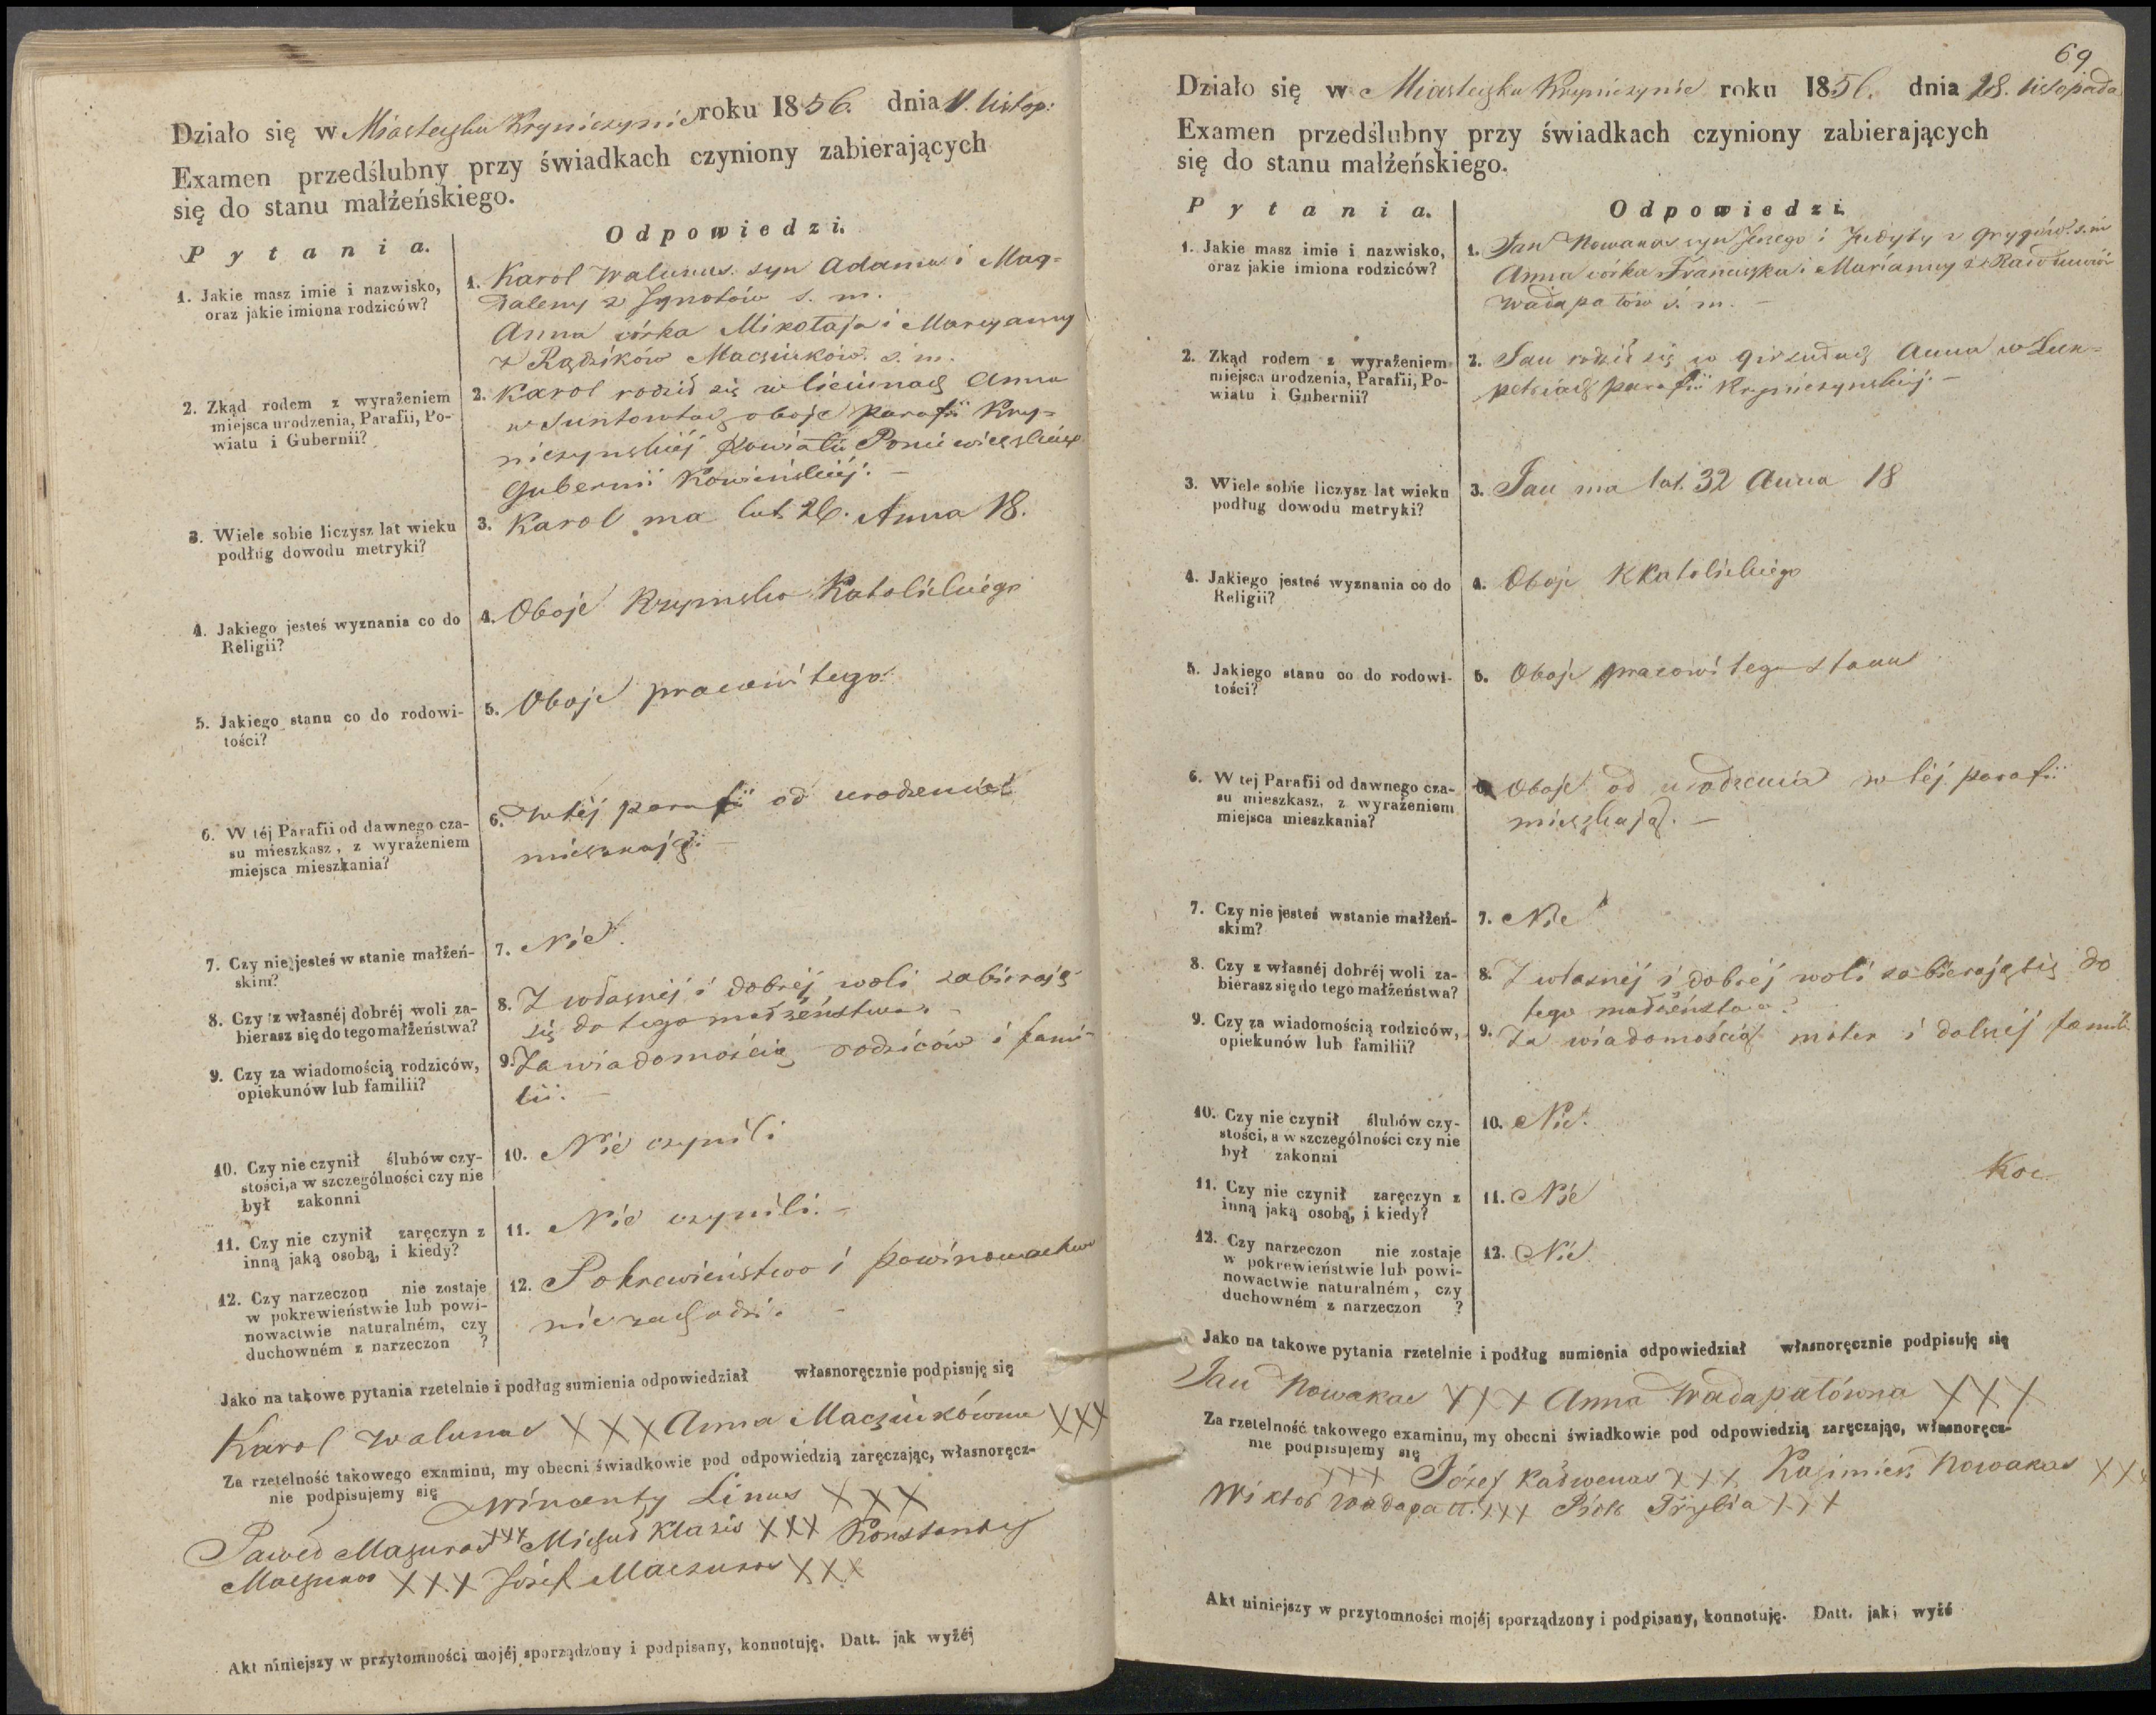 Działo się w Miasteczku Kryniczynie roku 1856. dnia 11. listop:
Examen przedślubny przy świadkach czyniony zabierających
się do stanu małżeńskiego.
Pytania.
Odpowiedzi.
1. Jakie masz imie i nazwisko,
oraz jakie imiona rodziców?
1. Karol Walunas syn Adama i Mag-
daleny z Ignotów s. m.
Anna córka Mikołaja i Maryanny
z Rądzików Maczuków s. m.
2. Zkąd rodem z wyrażeniem
miejsca urodzenia, Parafii, Po-
wiatu i Gubernii?
2. Karol rodził się w Anna
w oboje parafii Kry-
niczynskiéj Powiatu Poniewiezskiego
Gubernii Kowieńskiéj. —
3. Wiele sobie liczysz lat wieku
podług dowodu metryki?
3. Karol ma lat 26. Anna 18.
4. Jakiego jesteś wyznania co do
Religii?
4. Oboje Rzymsko Katolickiego
5. Jakiego stanu co do rodowi-
tości?
5. Oboje pracowitego
6. W téj Parafii od dawnego cza-
su mieszkasz, z wyrażeniem
miejsca mieszkania?
6. W téj parafii od urodzenia
mieszkają. —
7. Czy nie jesteś w stanie małżeń-
skim?
7. Nie.
8. Czy z własnéj dobréj woli za-
bierasz się do tego małżeństwa?
8. Z własnéj i dobréj woli zabierają
się do tego małżeństwa. —
9. Czy za wiadomością rodziców,
opiekunów lub familii?
9. Za wiadomością rodziców i fami-
lii. —
10. Czy nie czynił ślubów czy-
stości, a w szczególności czy nie
był zakonni
10. Nie czynili
11. Czy nie czynił zaręczyn z
inną jaką osobą, i kiedy?
11. Nie czynili. —
12. Czy narzeczon nie zostaje
w pokrewieństwie lub powi-
nowactwie naturalném, czy
duchowném z narzeczon ?
12. Pokrewieństwo i powinowactwo
nie zachodzi. —
Jako na takowe pytania rzetelnie i podług sumienia odpowiedział własnoręcznie podpisuję się
Karol Walunas XXX Anna Maczukówna XXX
Za rzetelność takowego examinu, my obecni świadkowie pod odpowiedzią zaręczając, własnoręcz-
nie podpisujemy się
Wincenty Linus XXX
Paweł Mazuras XXX Michał Klasis XXX Konstanty
Maczukas XXX Józef Maczukas XXX
Akt niniejszy w przytomności mojéj sporządzony i podpisany, konnotuję. Datt. jak wyżéj
69
Działo się w Miasteczku Kryniczynie roku 1856. dnia 18. listopada
Examen przedślubny przy świadkach czyniony zabierających
się do stanu małżeńskiego.
Pytania.
Odpowiedzi.
1. Jakie masz imie i nazwisko,
oraz jakie imiona rodziców?
1. Jan Nowakas syn Jerzego i Judyty z Grygów s. m
Anna córka Franciszka i Marianny z
Wadapałów s. m. —
2. Zkąd rodem z wyrażeniem
miejsca urodzenia, Parafii, Po-
wiatu i Gubernii?
2. Jan rodził się w Girsudach Anna w Luk-
petriach parafii Kryniczynskiéj. —
3. Wiele sobie liczysz lat wieku
podług dowodu metryki?
3. Jan ma lat. 32 Anna 18
4. Jakiego jesteś wyznania co do
Religii?
4. Oboje RKatolickiego
5. Jakiego stanu co do rodowi-
tości?
5. Oboje pracowitego stanu
6. W tej Parafii od dawnego cza-
su mieszkasz, z wyrażeniem
miejsca mieszkania?
6. Oboje od urodzenia w téj parafii
mieszkają. —
7. Czy nie jesteś wstanie małżeń-
skim?
7. Nie
8. Czy z własnéj dobréj woli za-
bierasz się do tego małżeństwa?
8. Z własnéj i dobréj woli zabierają się do
tego małżeństwa.
9. Czy za wiadomością rodziców,
opiekunów lub familii?
9. Za wiadomością matek i dalszéj famili.
10. Czy nie czynił ślubów czy-
stości, a w szczególności czy nie
był zakonni
10. Nie.
Koc
11. Czy nie czynił zaręczyn z
inną jaką osobą, i kiedy?
11. Nie
12. Czy narzeczon nie zostaje
w pokrewieństwie lub powi-
nowactwie naturalném, czy
duchowném z narzeczon ?
12. Nie.
Jako na takowe pytania rzetelnie i podług sumienia odpowiedział własnoręcznie podpisuję się
Jan Nowakas XXX Anna Wadapałówna XXX
Za rzetelność takowego examinu, my obecni świadkowie pod odpowiedzią zaręczając, własnoręcz-
nie podpisujemy się
XXX Józef Kaswenas XXX Kazimierz Nowakas XXX
Wiktor Wadapałł. XXX Piotr XXX
Akt niniejszy w przytomności mojéj sporządzony i podpisany, konnotuję. Datt. jak wyżé